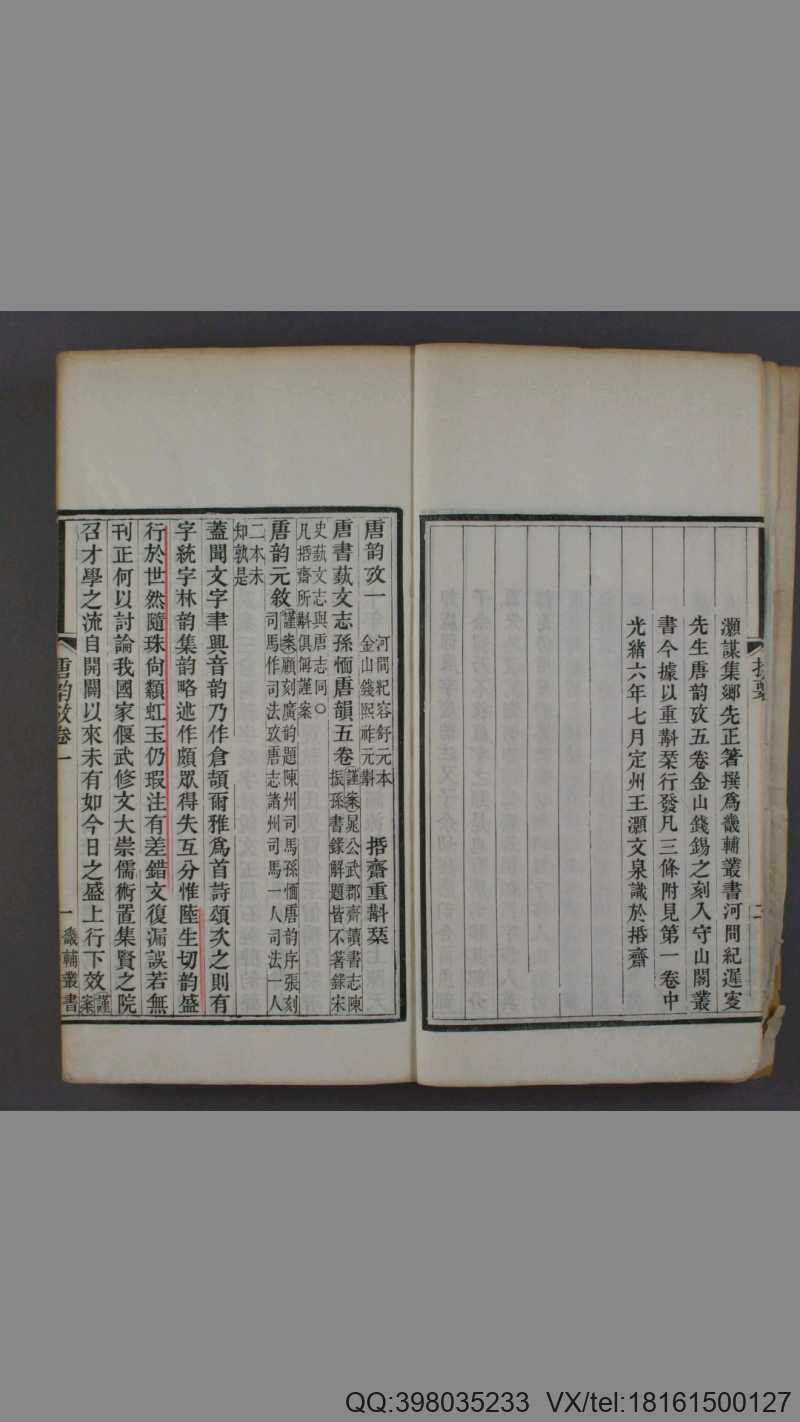 灝謀集鄉先正著撰爲畿輔叢書河間紀遲叟
先生唐韵攷五卷金山錢錫之刻入守山閣叢
書今據以重斠栞行發凡三條附見第一卷中
光緒六年七月定州王灝文泉識於㨉齋
二
唐韵攷一
河間紀容舒元本
金山錢熙祚元斠
㨉齋重斠栞
唐書蓺文志孫愐唐韻五卷
謹案晁公武郡齊讀書志陳
振孫書錄解題皆不著錄宋
史蓺文志與唐志同○
凡㨉齋所斠俱偁謹案
唐韵元敘
謹案顧刻廣韵題陳州司馬孫愐唐韵序張刻
司馬作司法攷唐志諸州司馬一人司法一人
二本未
知孰是
蓋聞文字聿興音韵乃作倉頡爾雅爲首詩頌次之則有
字統字林韵集韵略述作頗眾得失互分惟陸生切韵盛
行於世然隨珠尙纇虹玉仍瑕注有差錯文復漏誤若無
刊正何以討論我國家偃武修文大崇儒術置集賢之院
召才學之流自開闢以來未有如今日之盛上行下效
謹
案
唐韵攷卷一
一
畿輔叢書
QQ:398035233 VX/tel:18161500127